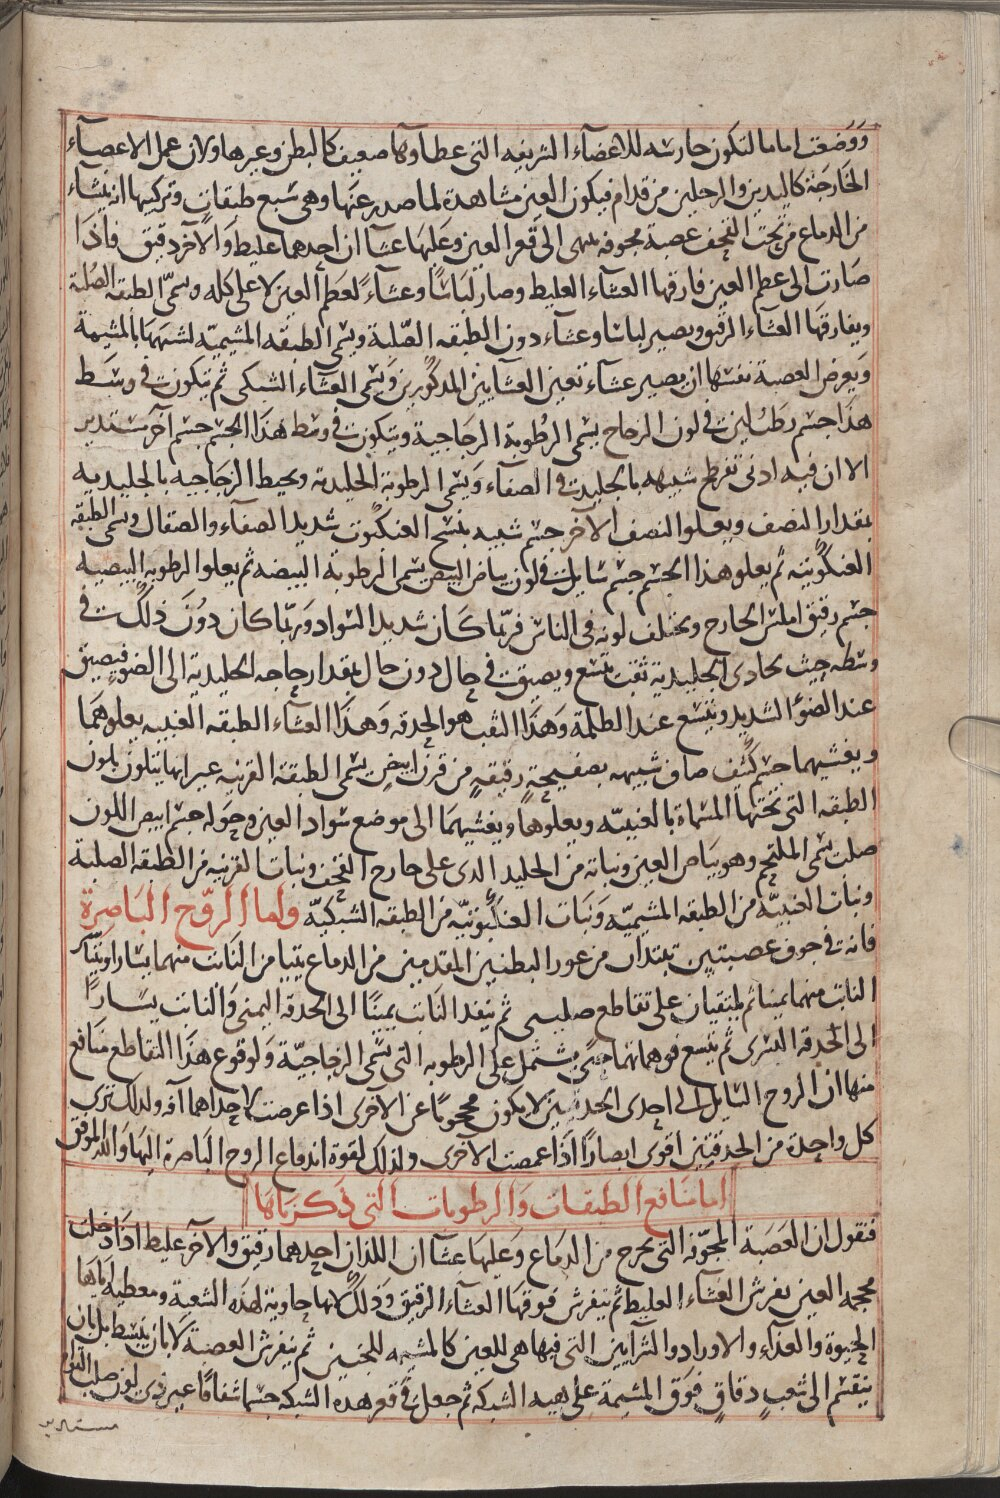 ووضعت اماما لتكون حارسه للاعضآء الشريفه التى عطاوها ضعيف كالبطن وغيرها ولان عمل الاعضآء
الخارجة كاليدين والرجلين من قدام فيكون العين مشاهدة لما صدر عنها وهى سبع طبقات وتركيبها ان ينشاء
من الدماغ من تحت القحف عصبة مجوفه تنتهى الى قعر العين وعليها غشآ ان احدهما غليظ والآخر دقيق فاذا
صارت الى عظم العين فارقها الغشآء الغليظ وصار لباسًا وغشآءً لعظم العين لا على كله ويسمى الطبقه الصلبة
ويفارقها الغشآء الرقيق ويصير لباسا وغشآء دون الطبقه الصّلبة ويسمى الطبقه المشيميّه لشبهها بالمشيمة
ويعرض العصبة نفسها ان يصير غشآء بعين الغشايين المذكورين ويسمى الغشآء الشبكى ثم يتكون فى وسط
هذا جسم رطب لين فى لون الزجاج يسمى الرطوبة الزجاجية ويتكون فى وسط هذا الجسم جسم آخر مستدير
الا ان فيه ادنى تفرطح شبيهه بالجليد فى الصفآء ويسمى الرطوبة الجليدية ويحيط الزجاجيه بالجليديه
بمقدار النصف ويعلوا النصف الآخر جسم شبيه بنسج العنكبوت شديد الصفآء والصقال ويسمى الطبقه
العنكبوتيه ثم يعلو هذا الجسم جسم سايل فى لون بياض البيض يسمى الرطوبة البيضه ثم يعلوا الرطوبه البيضيه
جسم رقيق املس الخارج ويختلف لونه فى الناس فربّما كان شديد السواد وربّما كان دون ذلك فى
وسطه حيث يحاذى الجليدية ثقب يتسع ويضيق فى حال دون حال بمقدار حاجه الجليدية الى الضو فيضيق
عند الضوء الشديد ويتسع عند الظلمة وهذا الثقب هو الحدقه وهذا الغشآء الطبقه العنبيه يعلوهما
ويغشيهما جسم كثيف صاف شبيهه بصفيحةٍ رقيقهٍ من قرن ابيض يسمى الطبقة القرنيه غير انها يتلون بلون
الطبقه التى تحتها المسماة بالعنبيّه ويعلوها ويغشيهما الى موضع سواد العين وحوله جسم ابيض اللون
صلب يسمى الملتحم وهو بياض العين ونباته من الجليد الذى على خارج القحف ونبات القرنيه من الطبقه الصلبة
ونبات العنبيّة من الطبقه المشيميّه ونبات العنكبوتيّه من الطبقه الشبكيّه واما الروح الباصرة
فانه فى جوف عصبتين تبتدان من غور البطنين المقدمين من الدماغ يتيا من النابت منهما يسارا ويتياسر
النابت منهما يمينا ثم يلتقيان على تقاطع صليبى ثم ينفد النابت يمينًا الى الحدقه اليمنى والنابت يسارًا
الى الحدقه اليسرى ثم يتسع فوهماتهما حتى يشتمل على الرطوبه التى تسمى الزجاجيّة ولوقوع هذا التقاطع منافع
منها ان الروح السايل الى احدى الحدقتين لا يكون محجوبًا عن الآخرى اذا عرضت لاحداهما آفه ولذلك ترى
كل واحدة من الحدقتين اقوى ابصارًا اذا غمضت الآخرى ولذلك لقوة اندفاع الروح الباصرة اليها والله الموفق
اما منافع الطبقات والرطوبات التى ذكرناها
فنقول ان العصبة المجوّفه التى تخرج من الدماغ وعليها غشآ ان اللذان احدهما رقيق والآخر غليظ اذا دخلت
محجمه العين يفرش الغشآء الغليظ ثم ينفرش فوقها الغشآء الرقيق وذلك لانها حاوية لهذه الشعبة ومعطيه اياها
الحيوة والغذآء والاوراد والشرايين التى فيها هى للعين كالمشيمه للجنين ثم ينفرش العصبة لا بان ينبسط بل بان
ينقسم الى شعبٍ دقاقٍ فوق المشيمة على هيه الشبكه ثم جعل فى قعر هذه الشبكه جسما شفافا غير ذى لون صلب القوام
مستدير